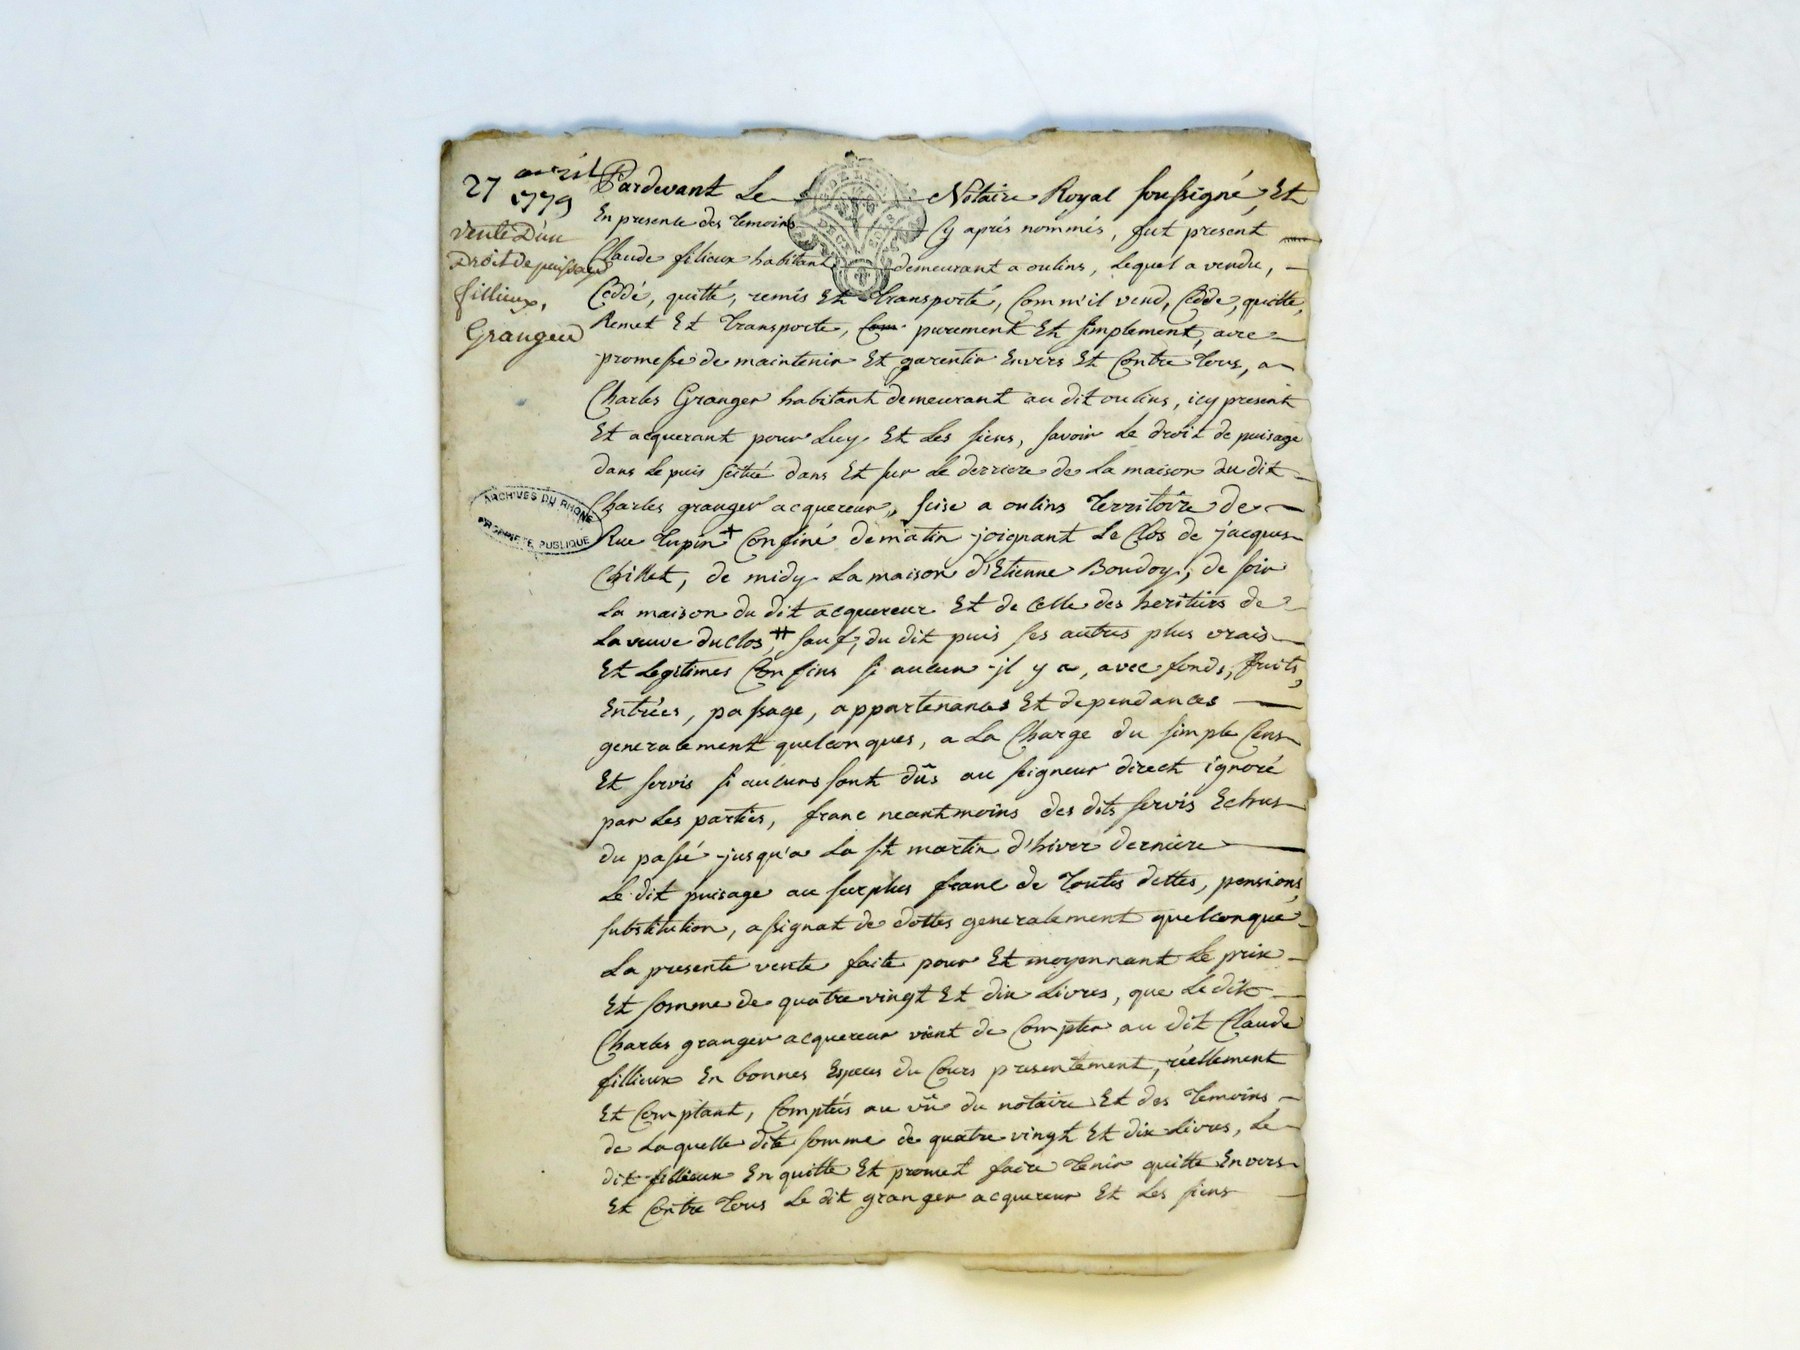 27 avril
1779
vente D'un
Droit de puissage
fillieux,
Granger
ARCHIVES DU RHÔNE
PROPRIÉTÉ PUBLIQUE
Pardevant Le Notaire Royal soussigné, Et
En presence des temoins Cy aprés nommés, fut present
Claude filieux habitant demeurant a oulins, Lequel a vendu,
Céddé, quitté, remis Et transporté, Comm'il vend, Cédde, quitte,
Remet Et transporte, purement Et simplement, avec
promesse de maintenir Et garentir Envers Et Contre tous, a
Charles Granger habitant demeurant au dit oulins, icy present
Et acquerant pour Luy Et Les siens, savoir Le droit de puisage
dans Le puis scitué dans Et sur Le derriere de La maison du dit
Charles granger acquereur, scise a oulins territoire de
Rue tupin + Confiné de matin joignant Le Clos de jacques
Chillet, de midy La maison d'Etienne Boudoy, de soir
La maison du dit acquereur Et de Celle des heritiers de
La veuve duclos, # sauf, du dit puis ses autres plus vrais
Et Legitimes Confins si aucun jl y a, avec fonds, fruits,
Entrées, passage, appartenances Et dependances
generalement quelconques, a La Charge du simple Cens
Et servis si aucuns sont dûs au seigneur direct ignoré
par Les parties, franc neantmoins des dits servis Echus
du passé jusqu'a La st martin d'hiver derniere
Le dit puisage au surplus franc de toutes dettes, pensions,
substitution, assignat de dottes generalement quelconque
La presente vente faite pour Et moyennant Le prix
Et somme de quatre vingt Et dix Livres, que Le dit
Charles granger acquereur vient de Compter au dit Claude
fillieux En bonnes Especes du Cours presentement, réellement
Et Comptant, Comptées au vû du notaire Et des temoins,
de Laquelle dite somme de quatre vingt Et dix Livres, Le
dit fillieux En quitte Et promet faire tenir quitte Envers
Et Contre tous Le dit granger acquereur Et Les siens